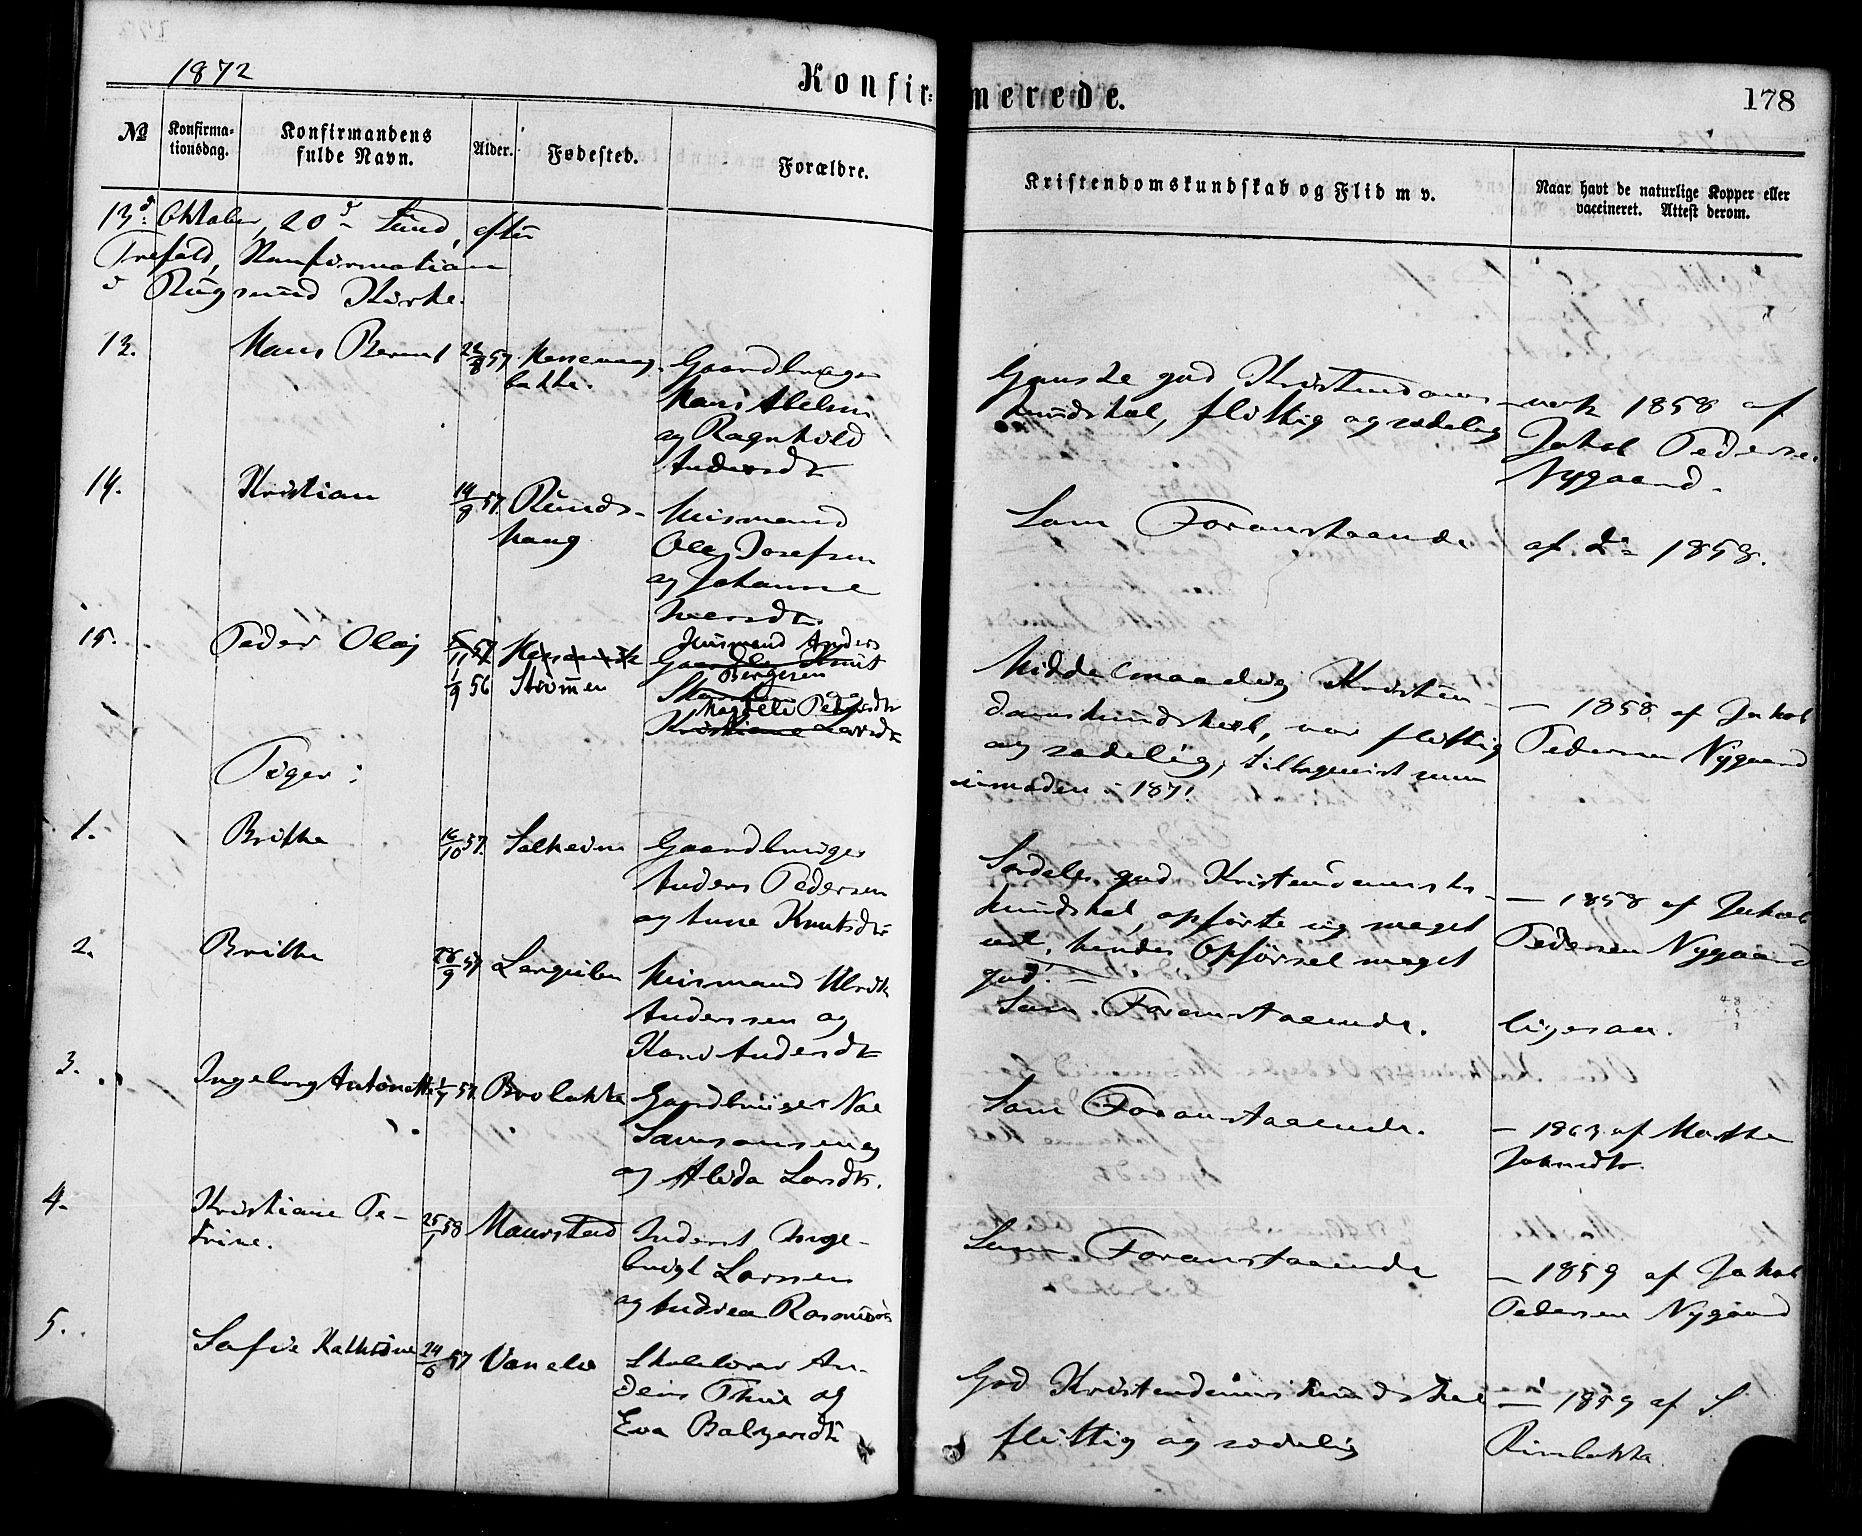 1872
Konfirmerede.
178
№
Konfirmationsdag.
Konfirmandens fulde Navn.
Alder.
Fødested.
Forældre.
Kristendomskundskab og Flid m v.
Naar havt de naturlige Kopper eller
vaccineret. Attest derom.
13de Oktober, 20de Sünd. efter
Trefold, Konfirmation
i Rugsund Kirke.
13. Hans Bernt 57
bakke.
Gaardbruger
Hans Abelsen
og Ragnhild
Andersdtr
Ganske god Kristendoms-
kundskab, flittig og sædelig
vack 1858 af
Jakob Pedersen
Nygaard.
14. Kristian 14/8 57 Runds-
haug
Husmand
Ole Josefsen
og Johanne
Iversdtr.
Som Foranstaaende
af do 1858.
15. Peder Olai 57
1/9 56 Strömen
Husmand Anders
Gaardbr. Knut
Bergesen
og
Magrete Pedersdtr
Kristiane Larsdtr
Middelmaadig Kristen-
domskundskab, var flittig
og sædelig, tilbagevist som
umoden i 1871
— 1858 af Jakob
Pedersen Nygaard
Piger:
1. Brithe 16/10 57. Salheim Gaardbruger
Anders Pedersen
og Anne Knutsdtr
Særdeles god Kristendoms-
kundskab, opførte sig meget
vel, hendes Opførsel meget
god!
— 1858 af Jakob
Pedersen Nygaard
2. Brithe 28/9 57 Husmand Ulrik
Anderssen og
Kari Andersdtr
Som Foranstaaende.
ligesaa.
3. Ingeborg Antonette 57. Brobakke Gaardbruger Noe
Samsonsen og
og Alida Larsdtr.
Som Foranstaaende.
— 1863 af Marthe
Johnsdtr.
4. Kristiane Pe-
trine.
25/1 58 Maurstad Inderst Inge-
brigt Larsen
og Andrea Rasmusdtr
Som Foranstaaende
— 1859 af Jakob
Pedersen Nygaard
5. Sofie Kathrine 24/6 57 Vanelv Skolelærer An-
ders Thue og
Eva Balzersdtr
God Kristendomskundskab
flittig og sædelig
— 1859 af S
Rimbakke.